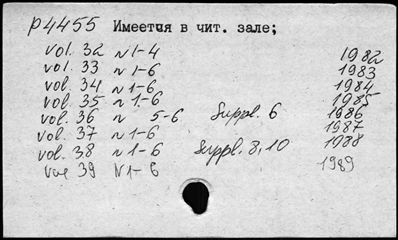 P4455 Имеется в чит. зале;
vol. 32 N 1-4 1982
vol. 33 N 1-6 1983
vol. 34 N 1-6 1984
vol. 35 N 1-6 1985
vol. 36 N 5-6 Suppl. 6 1986
vol. 37 N 1-6 1987
vol. 38 N 1-6 Suppl. 8,10 1988
vol 39 N1-6 1989